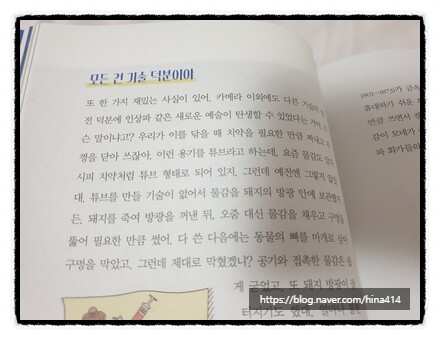 모든 건 기술 덕분이야
또 한 가지 재밌는 사실이 있어. 카메라 이외에도 다른 기술의 발
전 덕분에 인상파 같은 새로운 예술이 탄생할 수 있었다는 거야. 무
슨 말이냐고? 우리가 이를 닦을 때 치약을 필요한 만큼 짜내고 뚜
껑을 닫아 쓰잖아. 이런 용기를 튜브라고 하는데, 요즘 물감도 알다
시피 치약처럼 튜브 형태로 되어 있지. 그런데 예전엔 그렇지 않았
대. 튜브를 만들 기술이 없어서 물감을 돼지의 방광 안에 보관했거
든. 돼지를 죽여 방광을 꺼낸 뒤, 오줌 대신 물감을 채우고 구멍을
뚫어 필요한 만큼 썼어. 다 쓴 다음에는 동물의 뼈를 마개로 삼아
구멍을 막았고. 그런데 제대로 막혔겠니? 공기와 접촉한 물감은 쉽
게 굳었고, 또 돼지 방광이
터지기도 했대.
1801~1873)가 금속
휴대하기 쉬운
만큼 쓰면서
감이 모네가
과 화가들의
https://blog.naver.com/hina414